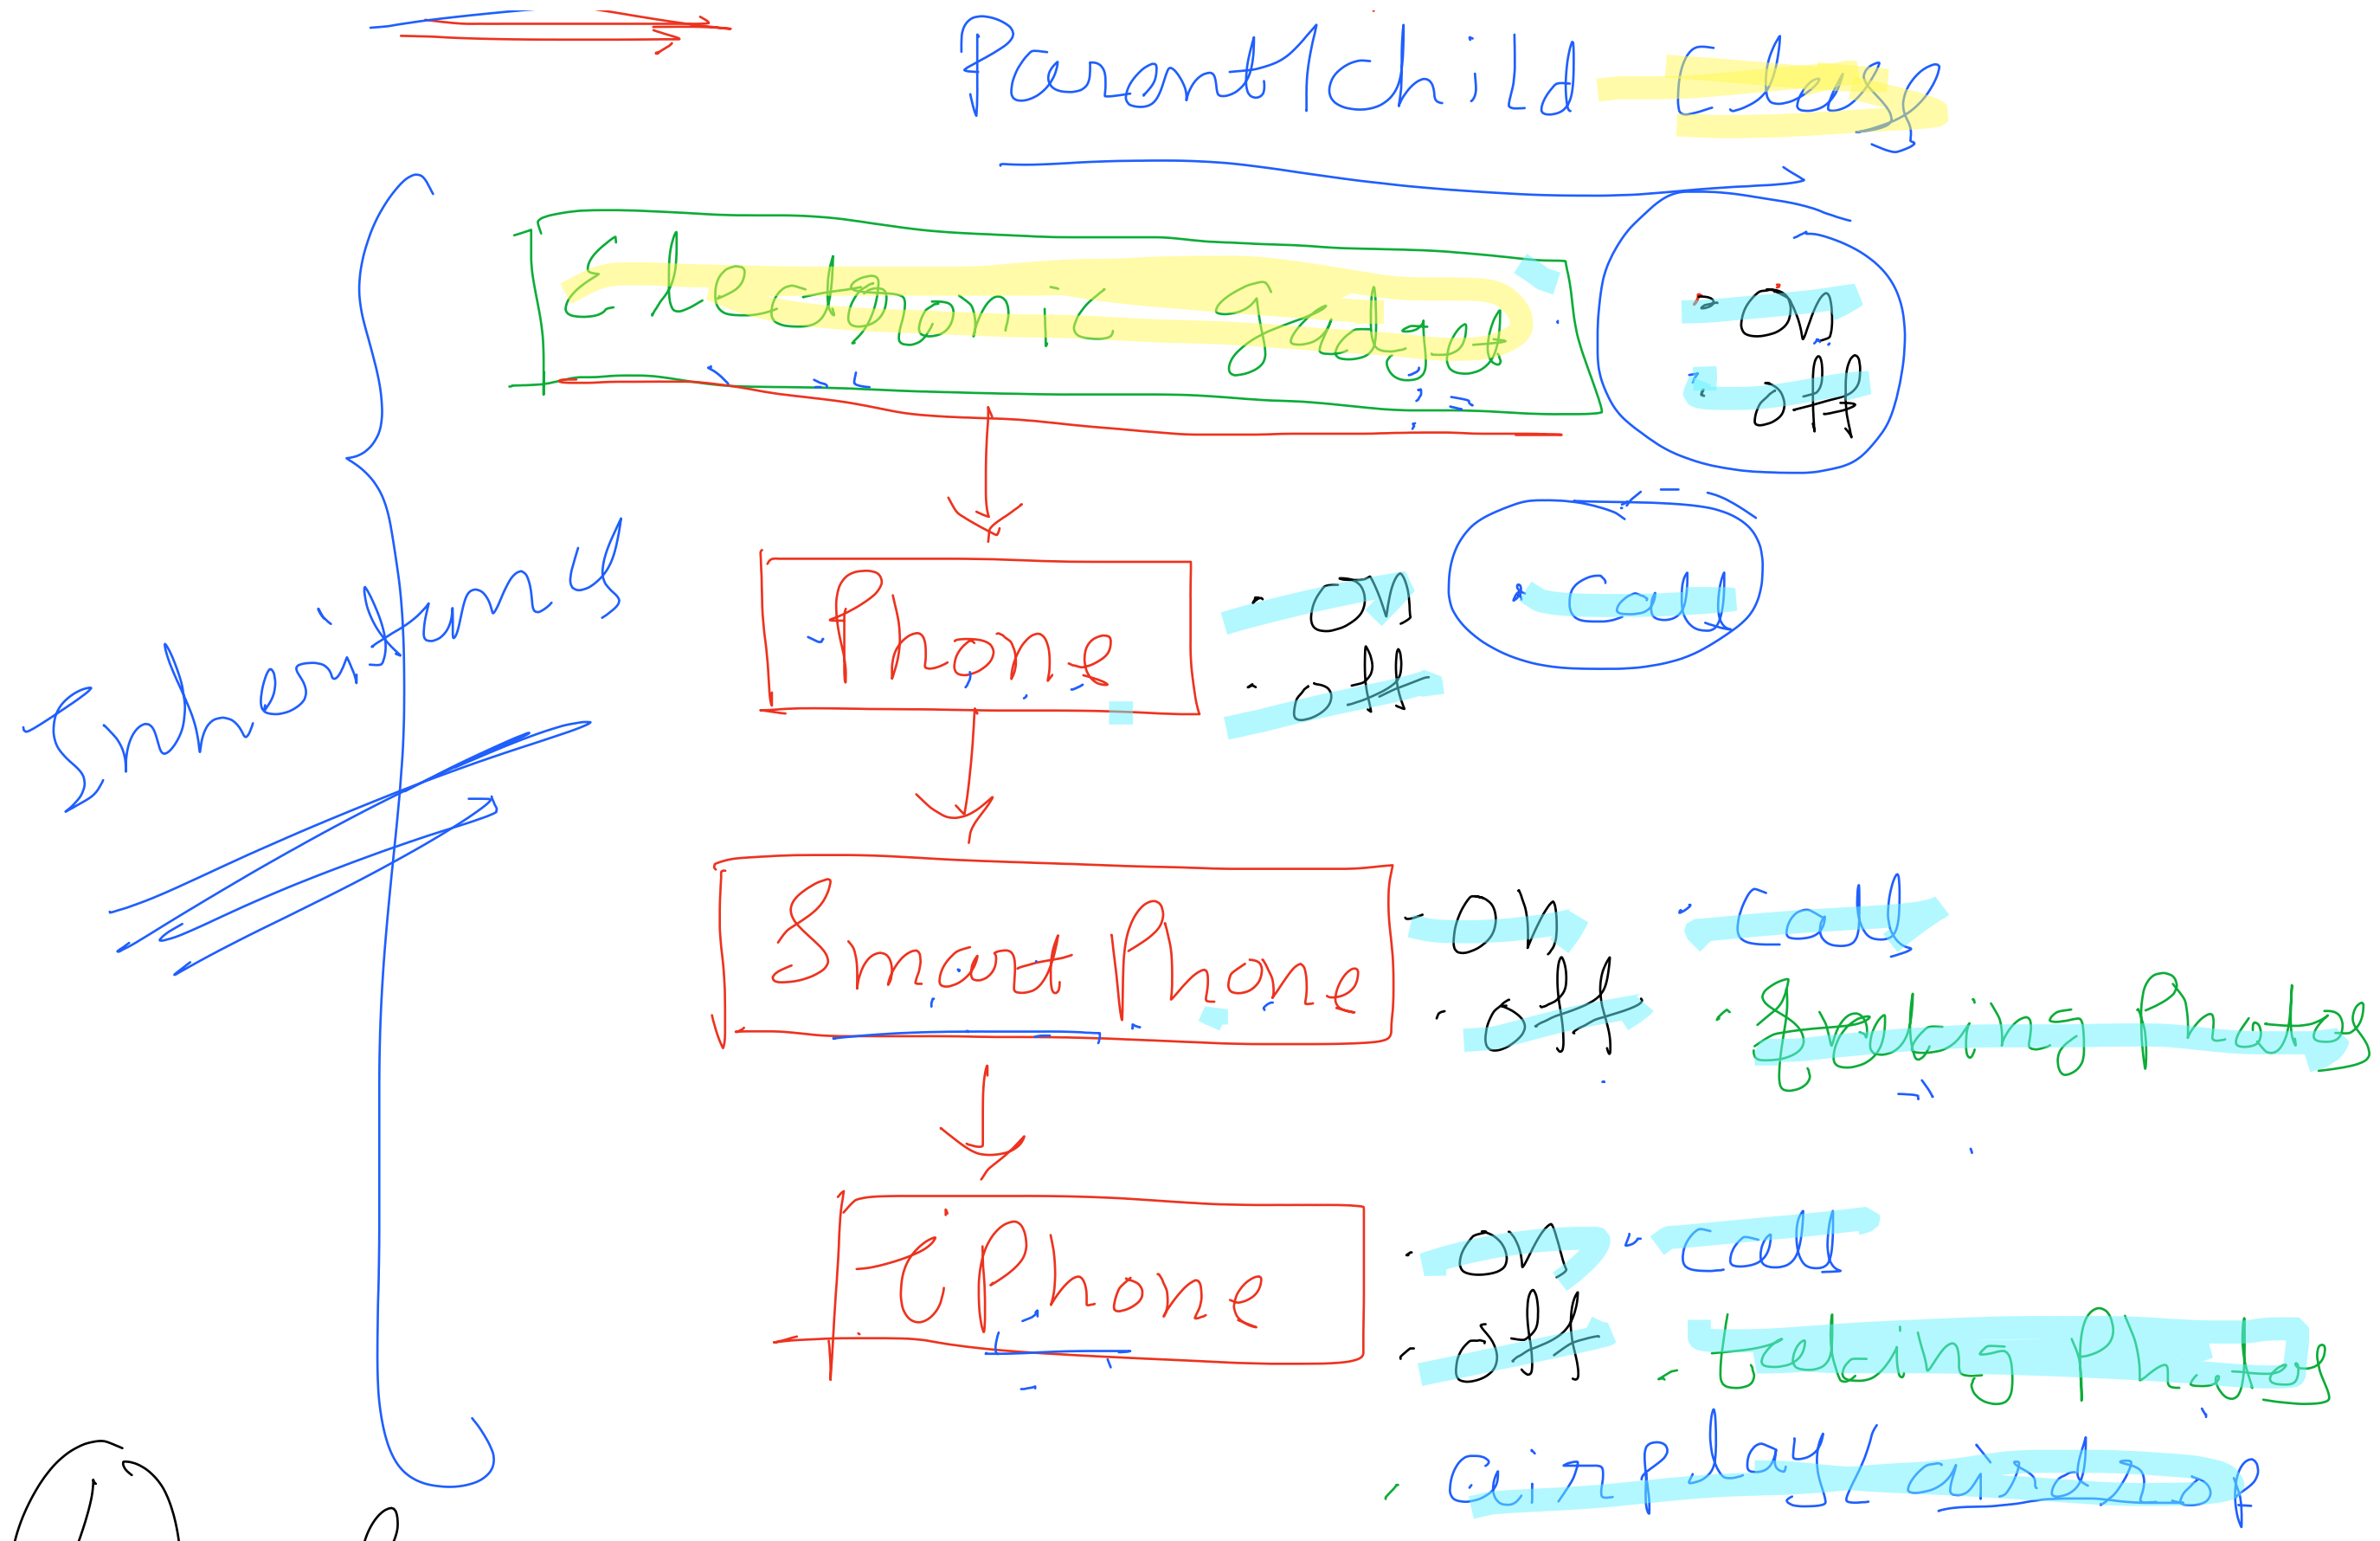 Parent/Child Class
Electronic gadget
- On
- off
Phone
- On
- off
- Call
Inheritance
Smart Phone
- On
- off
- Call
- taking Photos
iPhone
- On
- off
- Call
- taking Photos
- airplay/airdrop